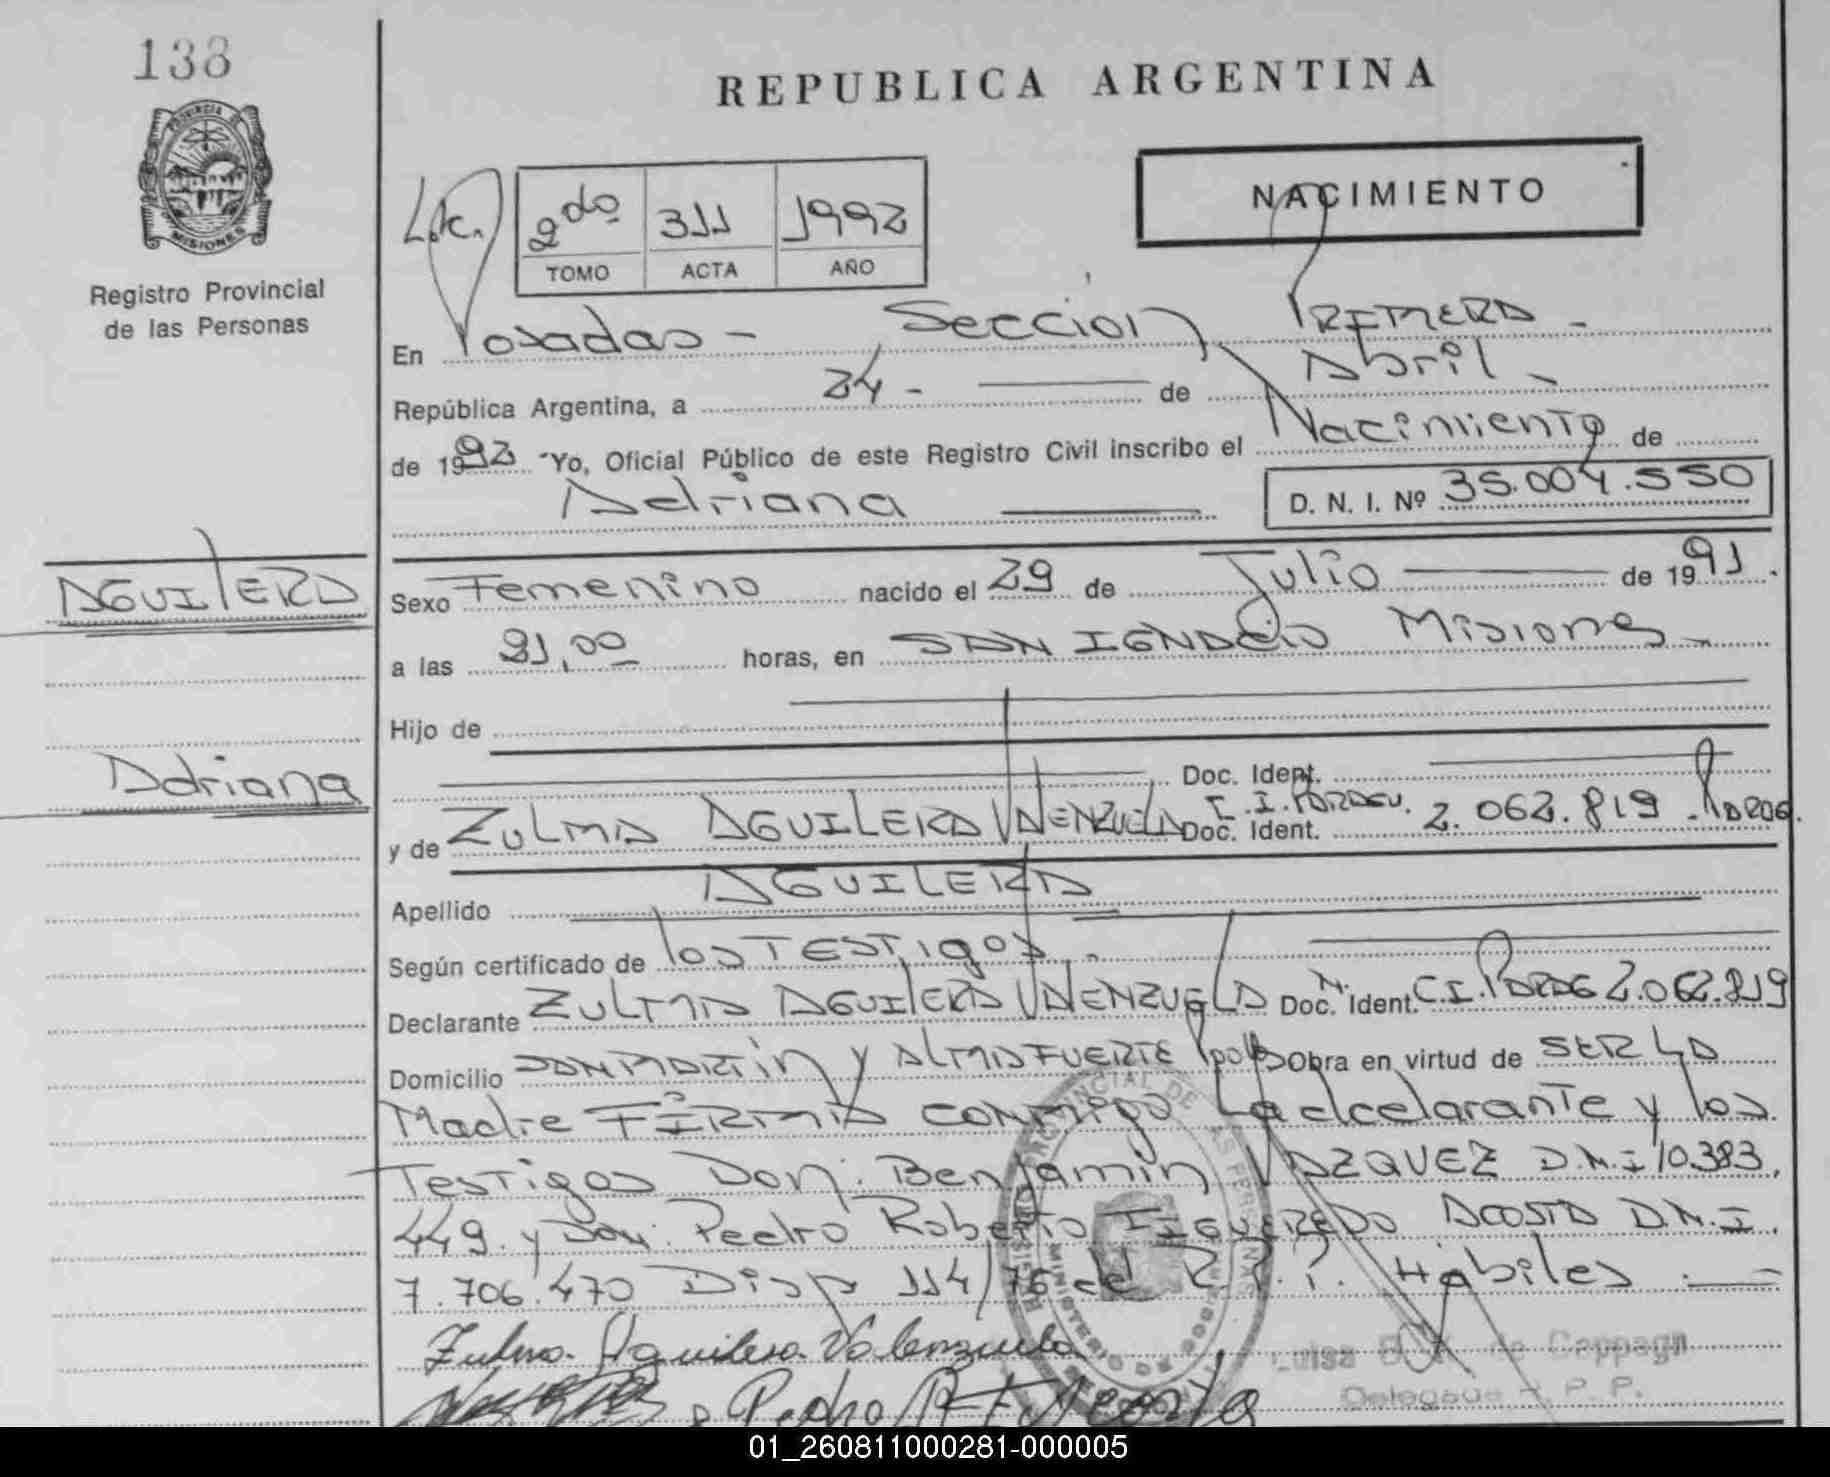 138
PROVINCIA DE
MISIONES
Registro Provincial
de las Personas
REPUBLICA ARGENTINA
NACIMIENTO
2do 311 1992
TOMO ACTA AÑO
En Posadas - Sección PRIMERA -
República Argentina, a 24 - de Abril -
de 1992 Yo, Oficial Público de este Registro Civil inscribo el Nacimiento de
Adriana D. N. I. Nº 35.004.550
AGUILERA
Sexo Femenino nacido el 29 de Julio de 1991.
a las 21,00 horas, en SAN IGNACIO Misiones -
Hijo de
Adriana
Doc. Ident.
y de ZULMA AGUILERA VALENZUELA Doc. Ident. C.I. PARAGU. 2.062.819
Apellido AGUILERA
Según certificado de los TESTIGOS.
Declarante ZULMA AGUILERA VALENZUELA Doc. Ident. N. C.I. PARAG 2.062.819
Domicilio SAN MARTIN Y ALMAFUERTE Obra en virtud de SER LA
Madre FIRMA CONMIGO La dcelarante y los
Testigos Don: Benjamin VAZQUEZ D.N.I 10.383.
449. y Don: Pedro Roberto FIGUEREDO ACOSTA D.N.I.
7.706.470 Disp 114/76 del R.P.P. Hábiles.
Zulma Aguilera Valenzuela
Pedro R F Acosta
Luisa de Cappagli
Delegada R. P. P.
01_260811000281-000005